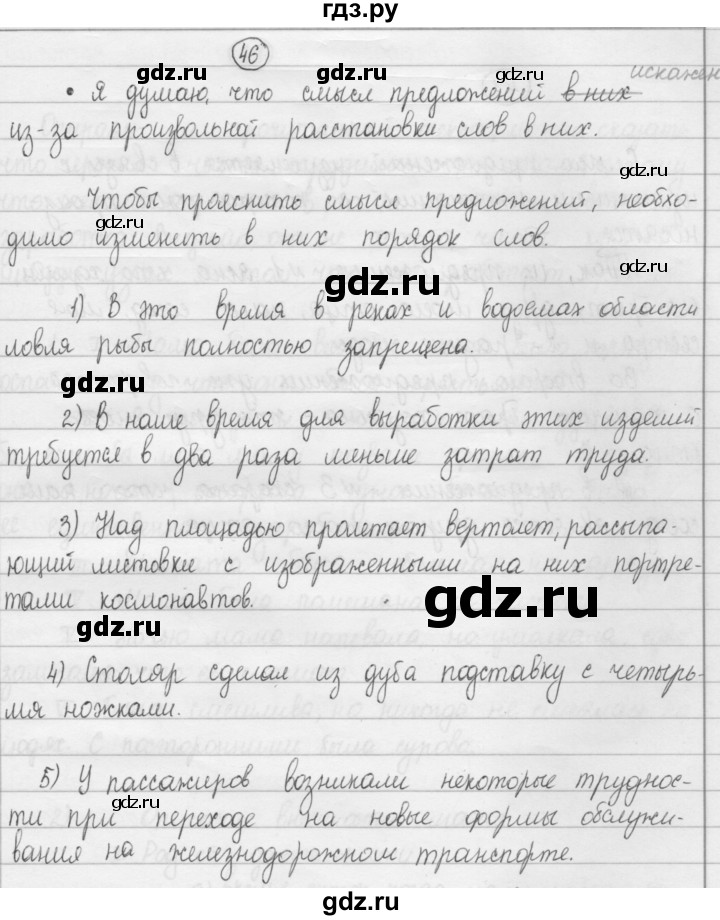 гдз.ру
46
gdz.ru gdz.ru
искажен
• Я думаю, что смысл предложений в них
из-за произвольной расстановки слов в них.
gdz.ru gdz.ru
Чтобы прояснить смысл предложений, необхо-
димо изменить в них порядок слов.
gdz.ru
1) В это время в реках и водоемах области
ловля рыбы полностью запрещена.
gdz.ru
2) В наше время для выработки этих изделий
требуется в два раза меньше затрат труда.
gdz.ru gdz.ru
3) Над площадью пролетает вертолет, рассыпа-
ющий листовки с изображенными на них портре-
тами космонавтов.
gdz.ru
gdz.ru
4) Столяр сделал из дуба подставку с четырь-
мя ножками.
5) У пассажиров возникали некоторые труднос-
gdz.ru gdz.ru
ти при переходе на новые формы обслужи-
вания на железнодорожном транспорте.